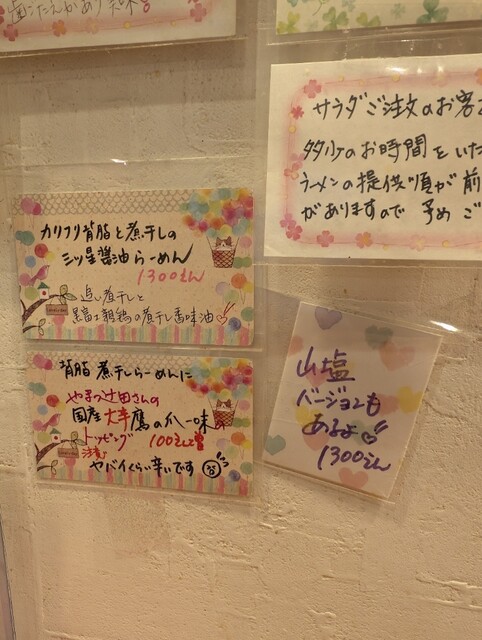 歯ごたえがあり美味
サラダご注文のお客
多少のお時間をいた
ラーメンの提供順が前
がありますので 予め ご
カリフリ背脂と煮干しの
三ツ星醤油らーめん
1300えん
追い煮干しと
黒富士親鶏の煮干し香味油
背脂 煮干しらーめんに
やまつ辻田さんの
国産 大辛 鷹の爪 一味
トッピング 100えん
注意 ヤバイくらい辛いです
山塩
バージョンも
あるよ
1300えん